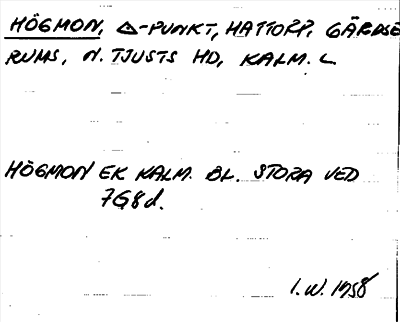 HÖGMON, △-PUNKT, HATTORP, GÄRDSE
RUMS, N. TJUSTS HD, KALM. L
HÖGMON EK KALM. BL. STORA VED
7G8d.
I.W. 1958